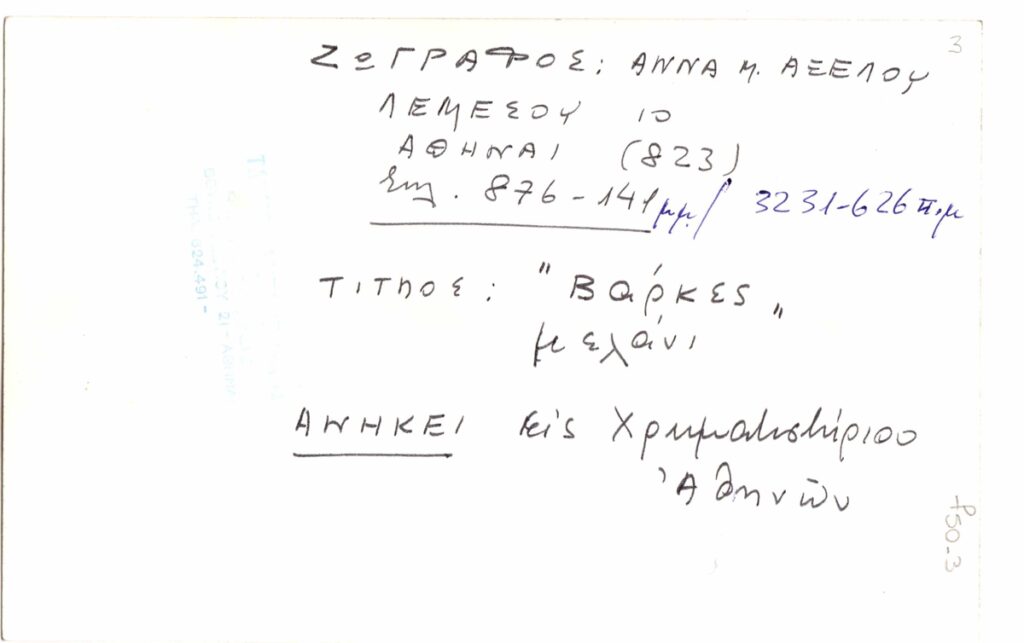 3
ΖΩΓΡΑΦΟΣ: ΑΝΝΑ Μ. ΑΞΕΛΟΥ
ΛΕΜΕΣΟΥ 10
ΑΘΗΝΑΙ (823)
τηλ. 876-141 μμ/ 3231-626 π.μ
ΤΙΤΛΟΣ: "Βάρκες"
μελάνι
ΑΝΗΚΕΙ εις Χρηματιστήριοο
Ἀθηνῶν
φ50-3
21 - ΑΘΗΝΑΙ
ΤΗΛ. 624.491 -